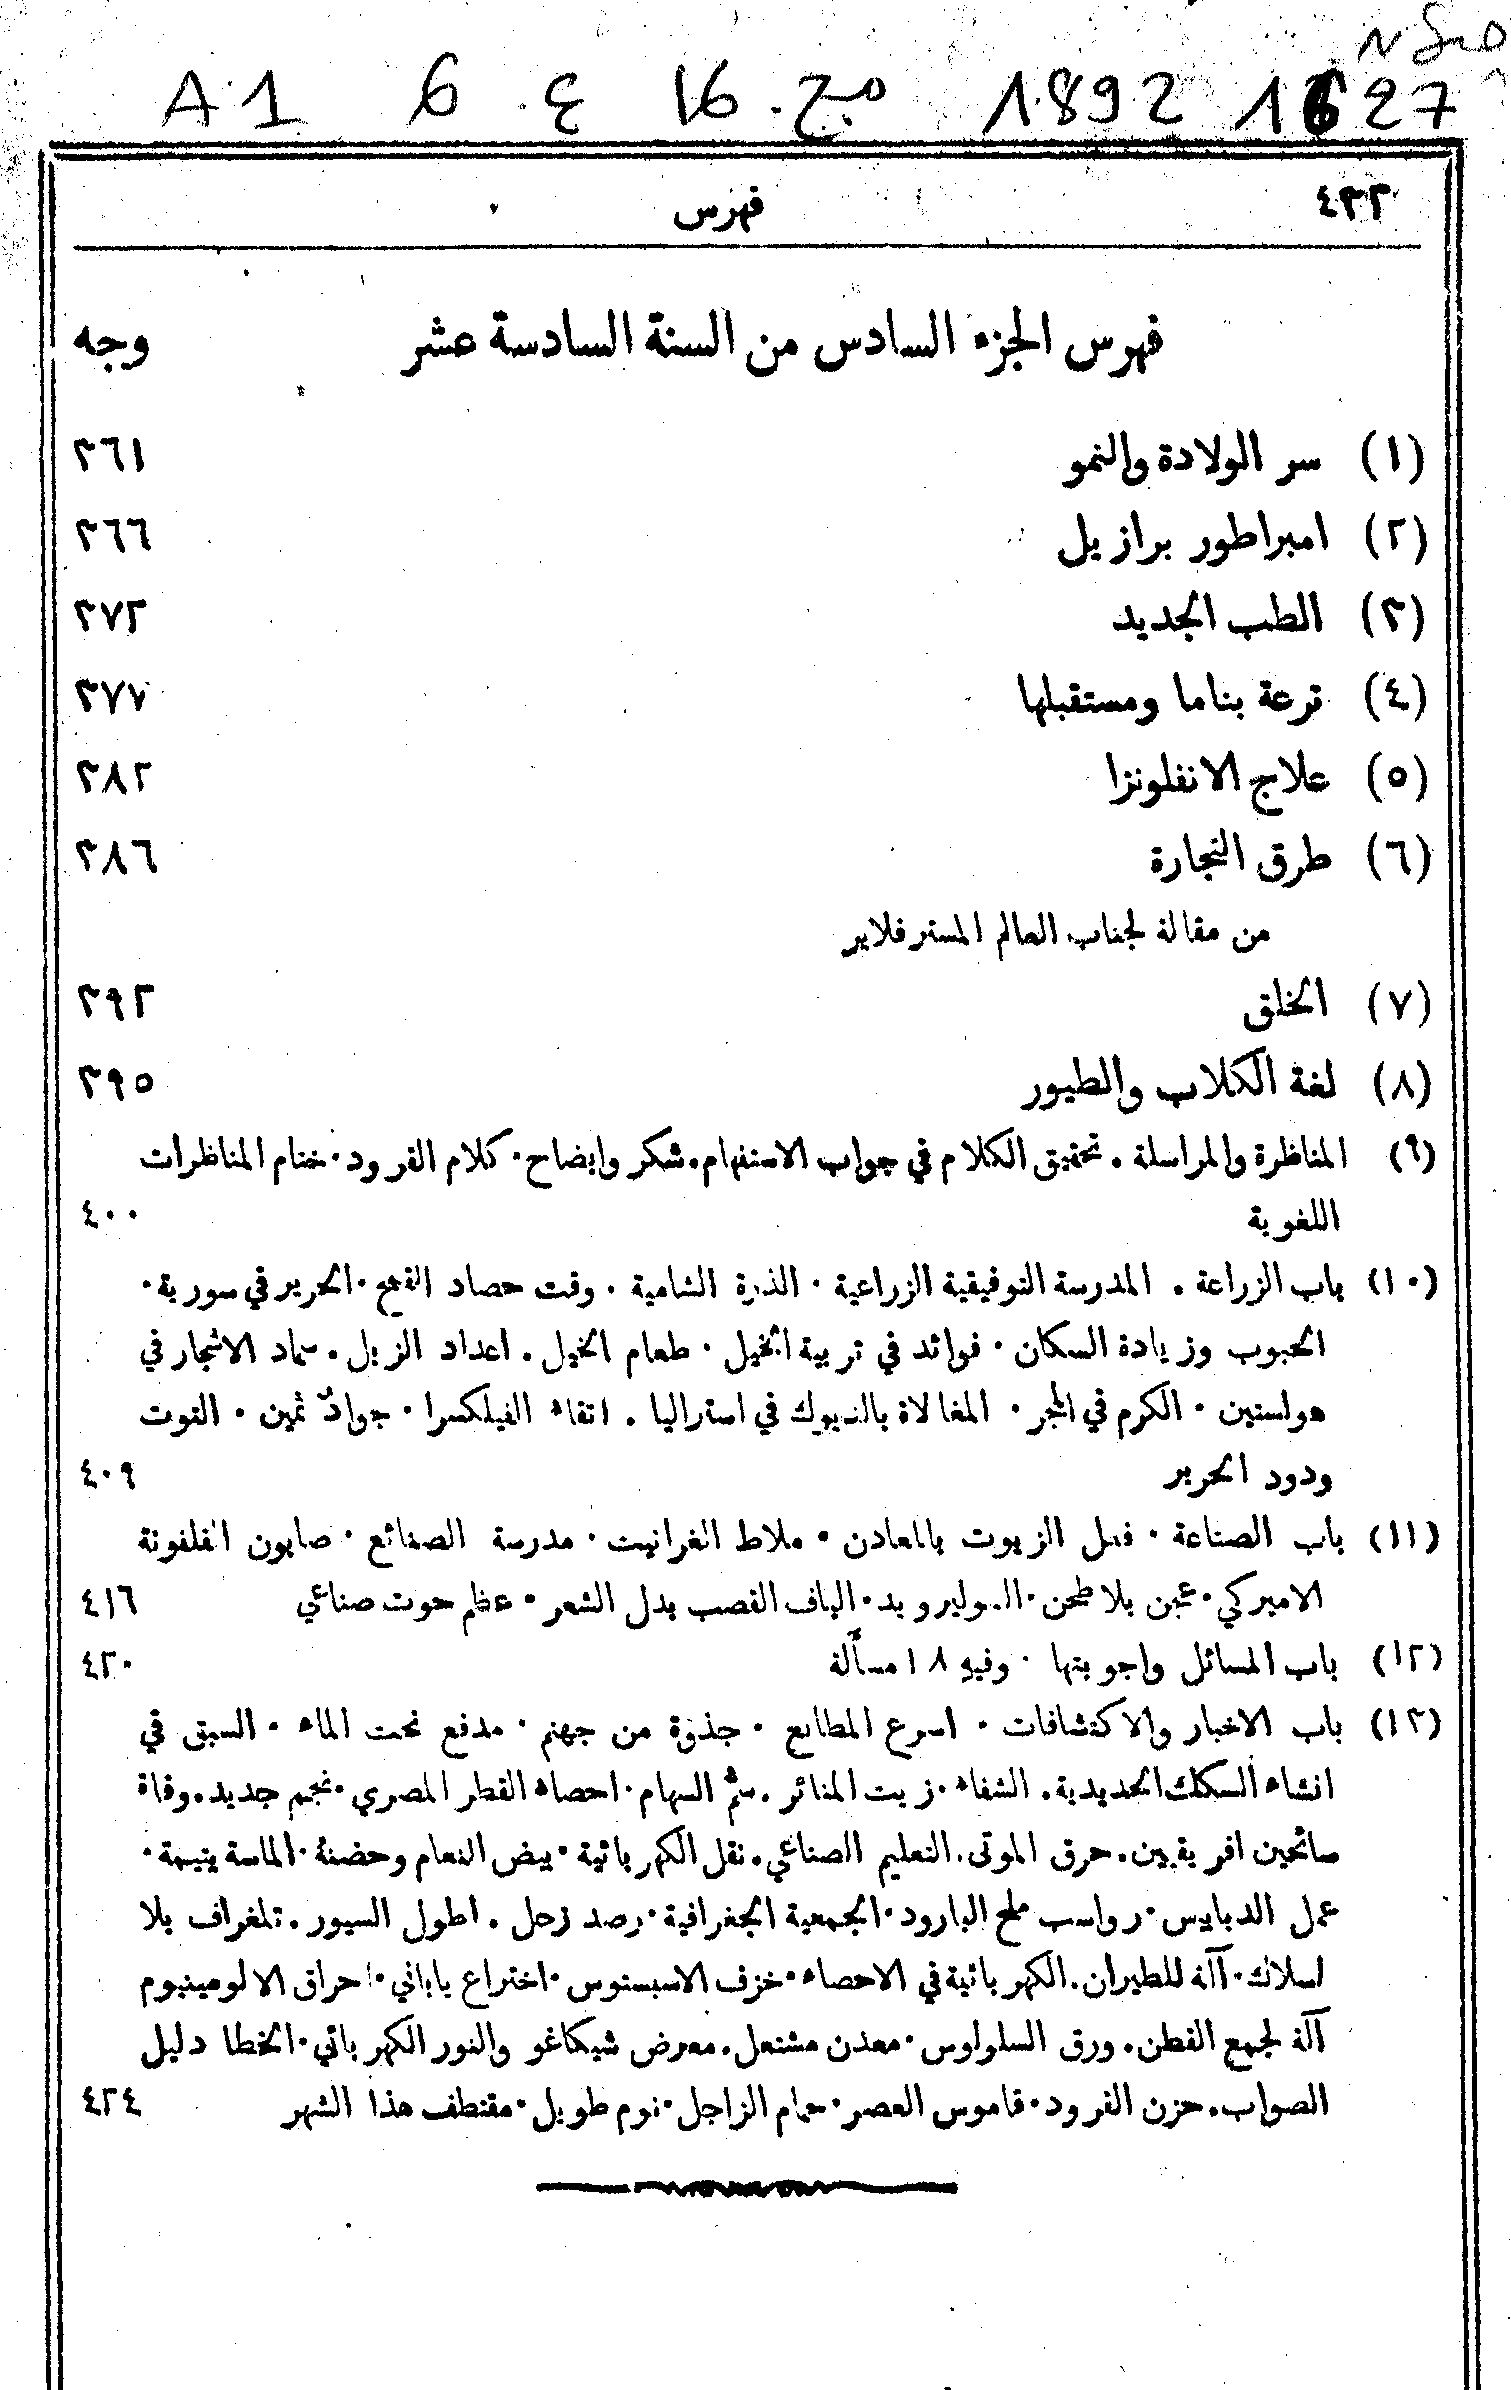 A1 6 ع. 16 مج. 1892 1627
٤٣٢
فهرس
فهرس الجزء السادس من السنة السادسة عشر
وجه
(١) سر الولادة والنمو ٣٦١
(٢) امبراطور برازيل ٣٦٦
(٣) الطب الجديد ٣٧٢
(٤) ترعة بناما ومستقبلها ٣٧٧
(٥) علاج الانفلونزا ٣٨٢
(٦) طرق التجارة ٣٨٦
من مقالة لجناب العالم المستر فلاير
(٧) الخلق ٣٩٢
(٨) لغة الكلاب والطيور ٣٩٥
(٩) المناظرة والمراسلة . تحقيق الكلام في جواب الاستفهام. شكر وايضاح. كلام القرود. ختام المناظرات
اللغوية ٤٠٠
(١٠) باب الزراعة . المدرسة التوفيقية الزراعية . الذرة الشامية . وقت حصاد القمح . الحرير في سورية.
الحبوب وزيادة السكان . فوائد في تربية الخيل . طعام الخيل . اعداد الزبل . سماد الاشجار في
هولستين . الكرم في المجر . المغالاة بالديوك في استراليا . اتقاء الفيلكسرا . جوادٌ ثمين . التوت
ودود الحرير ٤٠٩
(١١) باب الصناعة . فعل الزيوت بالمعادن . ملاط الغرانيت . مدرسة الصنائع . صابون القلفونة
الاميركي . عجن بلا طحن . الياف القصب بدل الشعر . عظم حوت صناعي ٤١٦
(١٢) باب المسائل واجوبتها . وفيهِ ١٨ مسأَلة ٤٢٠
(١٣) باب الاخبار والاكتشافات . اسرع المطابع . جذوة من جهنم . مدفع تحت الماء . السبق في
انشاء السكك الحديدية . الشفاء . زيت المنائر . سمُّ السهام . احصاء القطر المصري . نجم جديد . وفاة
سائحين افريقيين . حرق الموتى . التعليم الصناعي . نقل الكهربائية . بيض النعام وحضنة . الماسة يتيمة .
عمل الدبابيس . رواسب ملح البارود . الجمعية الجغرافية . رصد زحل . اطول السيور . تلغراف بلا
اسلاك . آلة للطيران . الكهربائية في الاحصاء . خزف الاسبستوس . اختراع ياباني . احراق الالومينيوم
آلة لجمع القطن . ورق السلولوس . معدن مشتعل . معرض شيكاغو والنور الكهربائي . الخطا دليل
الصواب . حزن القرود . قاموس العصر . حمام الزاجل . نوم طويل . مقتطف هذا الشهر ٤٢٤